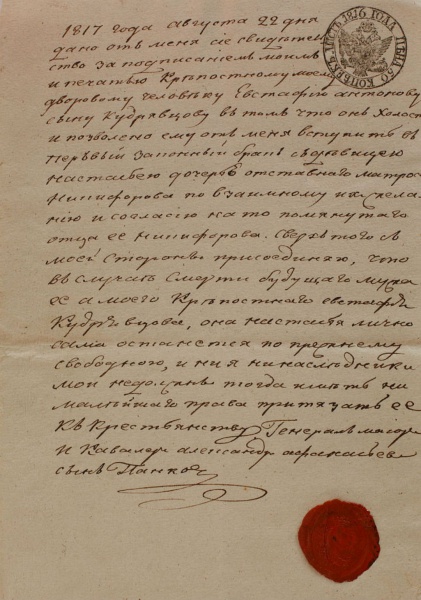 1817 года августа 22 дня
дано отъ меня сіе свидѣтел
ство за подписаніемъ моимъ
и печатью Крѣпостному моему
дворовому человѣку Евстафію антонову
сыну Кудрявцову въ томъ что онъ Холостъ
и позволено ему отъ меня вступить въ
первый законный бракъ съ девицею
настасьею дочерью отставнаго матроса
Никифорова по взаимному ихъ жела
нію и согласію на то помянутаго
отца ее Никифорова. Сверхъ того съ
моей Стороны присоединяю, что
въ случаѣ Смерти будущаго мужа
ее а моего Крѣпостнаго евстафія
Кудрявцова, она настасья лично
сама останется по прежнему
свободною, и ни я ни наслѣдники
мои недолжны тогда имѣть ни
малѣйшаго права притязать ее
къ Крестьянству Генералъ маіоръ
и Кавалеръ александръ афанасьевъ
сынъ Панков
ЛИСТЪ 1816 ГОДА ЦѢНА 50 КОПѢЕКЪ